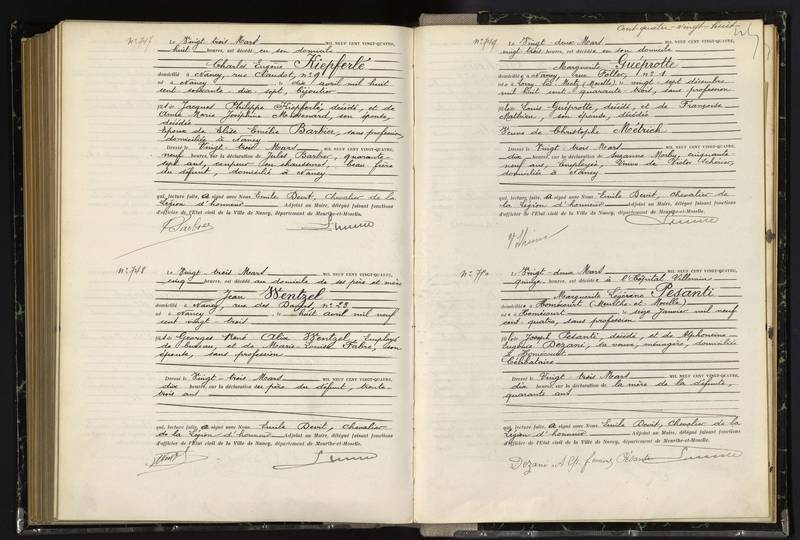 N° 747
Le Vingt trois Mars MIL NEUF CENT VINGT-QUATRE,
huit heures, est décédé en son domicile
Charles Eugène Kiepferlé
domicilié à Nancy, rue Claudot, n° 91
né à Nancy, le dix avril mil huit
cent soixante-dix-sept, bijoutier
fils de Jacques Philippe Kiepferlé, décédé, et de
Anne Marie Joséphine son épouse,
décédée
Epoux de Elise Emélie Barbier, sans profession,
domiciliée à Nancy
Dressé le Vingt-trois Mars
neuf heures, sur la déclaration de Jules Barbier, quarante-
sept ans, en chaussures, beau-frère
du défunt, domicilié à Nancy
qui, lecture faite, a signé avec Nous, Emile Devit, Chevalier de la
Légion d'honneur Adjoint au Maire, délégué faisant fonctions
d'officier de l'Etat civil de la Ville de Nancy, département de Meurthe-et-Moselle.
Barbier
N° 748
Le Vingt trois Mars MIL NEUF CENT VINGT-QUATRE,
cinq heures, est décédé au domicile de ses père et mère
Jean Wentzel
domicilié à Nancy, rue des Dames, n° 23
né à Nancy, le huit avril mil neuf
cent vingt-trois
fils de Georges René Alix Wentzel, Employé
de bureau, et de Marie-Louise Fabre, son
épouse, sans profession
Dressé le Vingt-trois Mars
dix heures, sur la déclaration du père du défunt, trente-
trois ans
qui, lecture faite, a signé avec Nous, Emile Devit, Chevalier
de la Légion d'honneur Adjoint au Maire, délégué faisant fonctions
d'officier de l'Etat civil de la Ville de Nancy, département de Meurthe-et-Moselle.
Cent quatre-vingt-huit
N° 749
Le Vingt-deux Mars MIL NEUF CENT VINGT-QUATRE,
vingt-trois heures, est décédée en son domicile
Marguerite Guéprotte
domiciliée à Nancy, rue n° 1
née à Metz (Moselle) le vingt-sept décembre
mil huit cent quarante-trois, sans profession
fille de Louis Guéprotte, décédé, et de Françoise
Mathieu, son épouse, décédée
Veuve de Christophe Métrich
Dressé le Vingt-trois Mars
dix heures, sur la déclaration de Suzanne cinquante-
neuf ans, Employée, Veuve de Victor
domiciliée à Nancy
qui, lecture faite, a signé avec Nous, Emile Devit, Chevalier de
la Légion d'honneur Adjoint au Maire, délégué faisant fonctions
d'officier de l'Etat civil de la Ville de Nancy, département de Meurthe-et-Moselle.
N° 750
Le Vingt-deux Mars MIL NEUF CENT VINGT-QUATRE,
quinze heures, est décédée à l'Hôpital Villemin
Marguerite Pesanti
domiciliée à Homécourt (Meurthe et Moselle)
née à Homécourt le seize Janvier mil neuf
cent quatre, sans profession
fille de Joseph Pesanti, décédé, et de Alphonsine
Eugénie Dezani, sa veuve, ménagère, domiciliée
à Homécourt
Célibataire
Dressé le Vingt-trois Mars
dix heures, sur la déclaration de la mère de la défunte,
quarante ans
qui, lecture faite, a signé avec Nous, Emile Devit, Chevalier de la
Légion d'honneur Adjoint au Maire, délégué faisant fonctions
d'officier de l'Etat civil de la Ville de Nancy, département de Meurthe-et-Moselle.
Dezani femme Pesanti